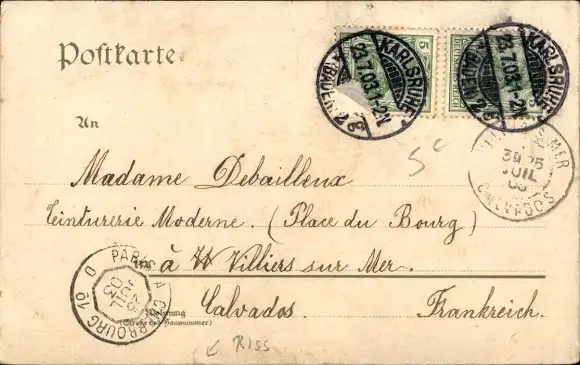 Postkarte.
5
KARLSRUHE
(BADEN) 2
23.7.03.1-2N.
KARLSRUHE
(BADEN) 2
23.7.03.1-2N.
An
5c
MER
JUIL
CALVADOS
Madame Debailleux
Teinturerie Moderne. (Place du Bourg)
à Villiers sur Mer.
Calvados. Frankreich.
Wohnung
(Straße und Hausnummer)
PARIS A CHERBOURG
Riss